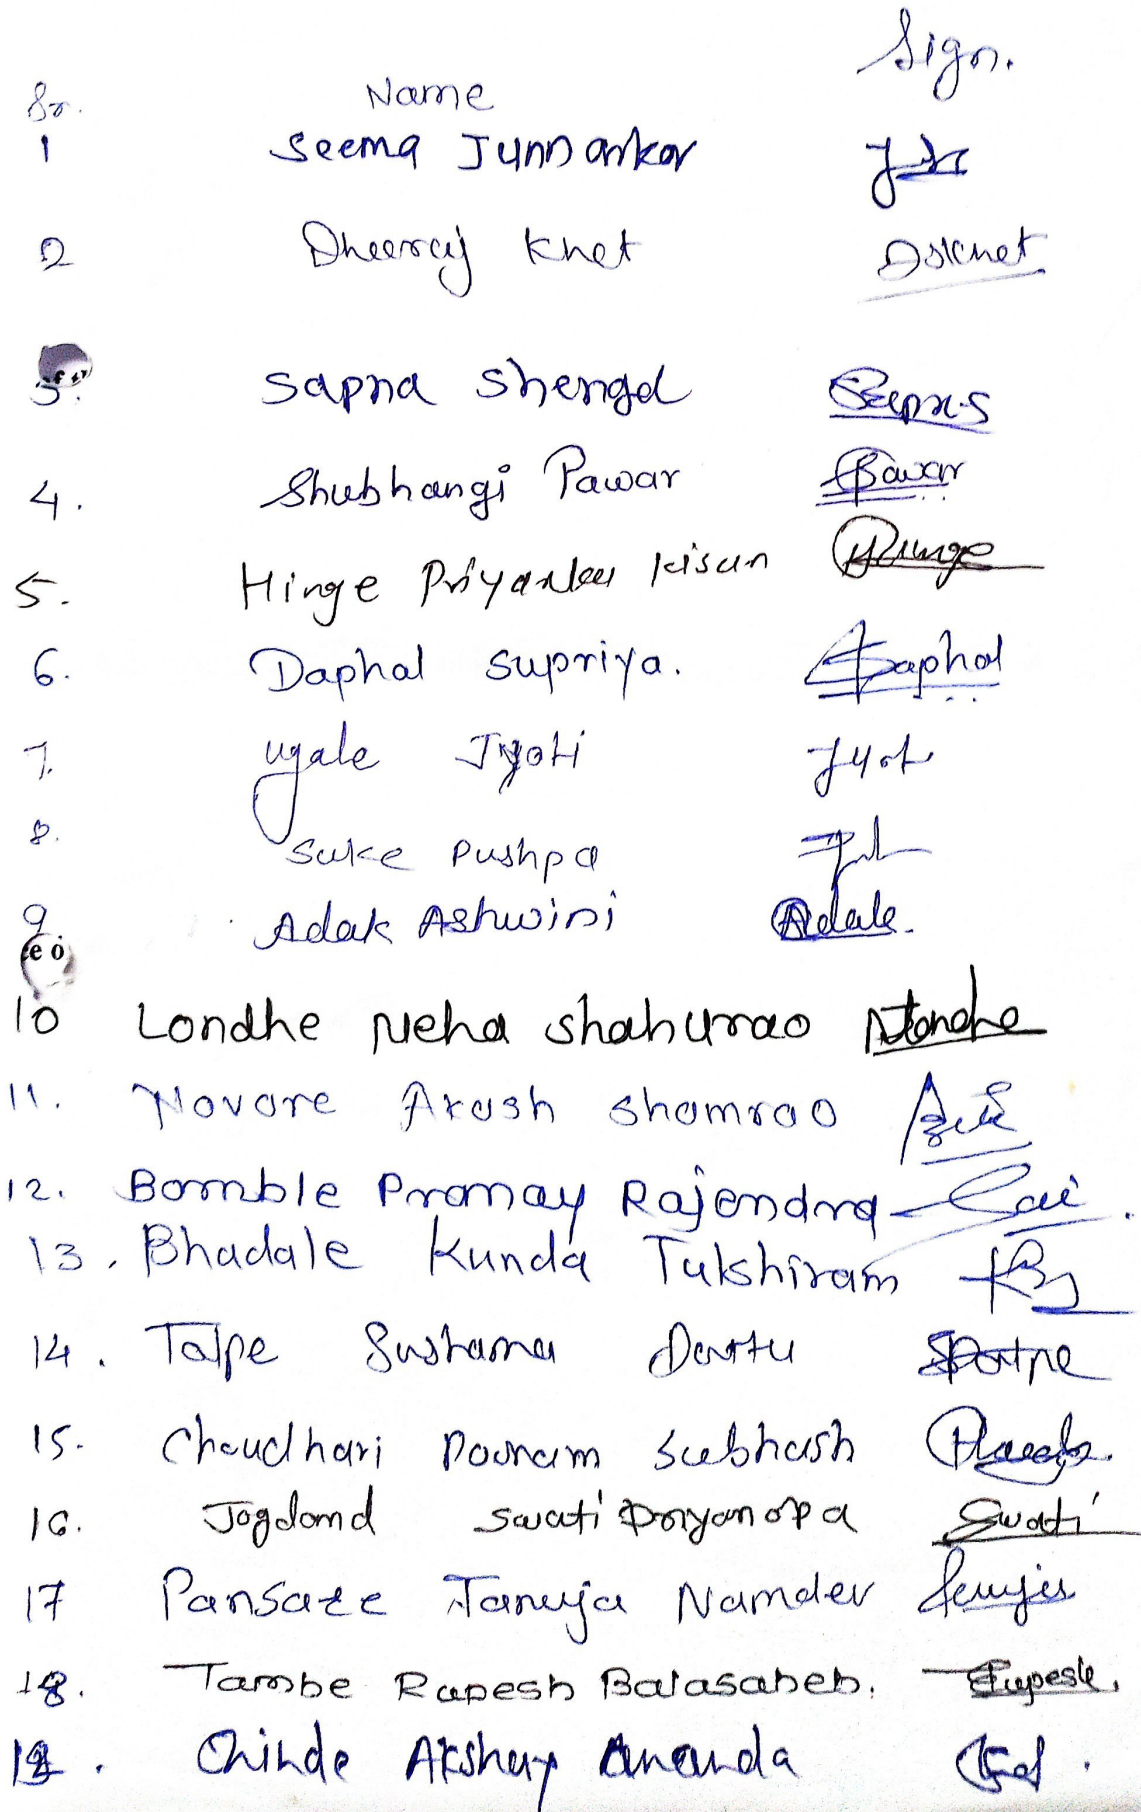 Sign.
Sr. Name
1 Seema Junnarkar
2 Dheeraj Khet Dskhet
3. Sapna Shengal Sapna.S
4. Shubhangi Pawar Pawar
5. Hinge Priyanka Kisan Hinge
6. Daphal Supriya. Daphal
7. Ugale Jyoti Jyot
8. Suke Pushpa
9. Adak Ashwini Adak.
10 Londhe Neha Shahurao NLondhe
11. Novore Akash Shamrao
12. Bomble Pranay Rajendra
13. Bhadale Kunda Tulshiram
14. Talpe Sushama Dattu
15. Choudhari Poonam Subhash
16. Jogdand Swati Swati
17 Pansare Tanuja Namdev
18. Tambe Rupesh Balasaheb. Rupesh.
19. Chinde Akshay Ananda